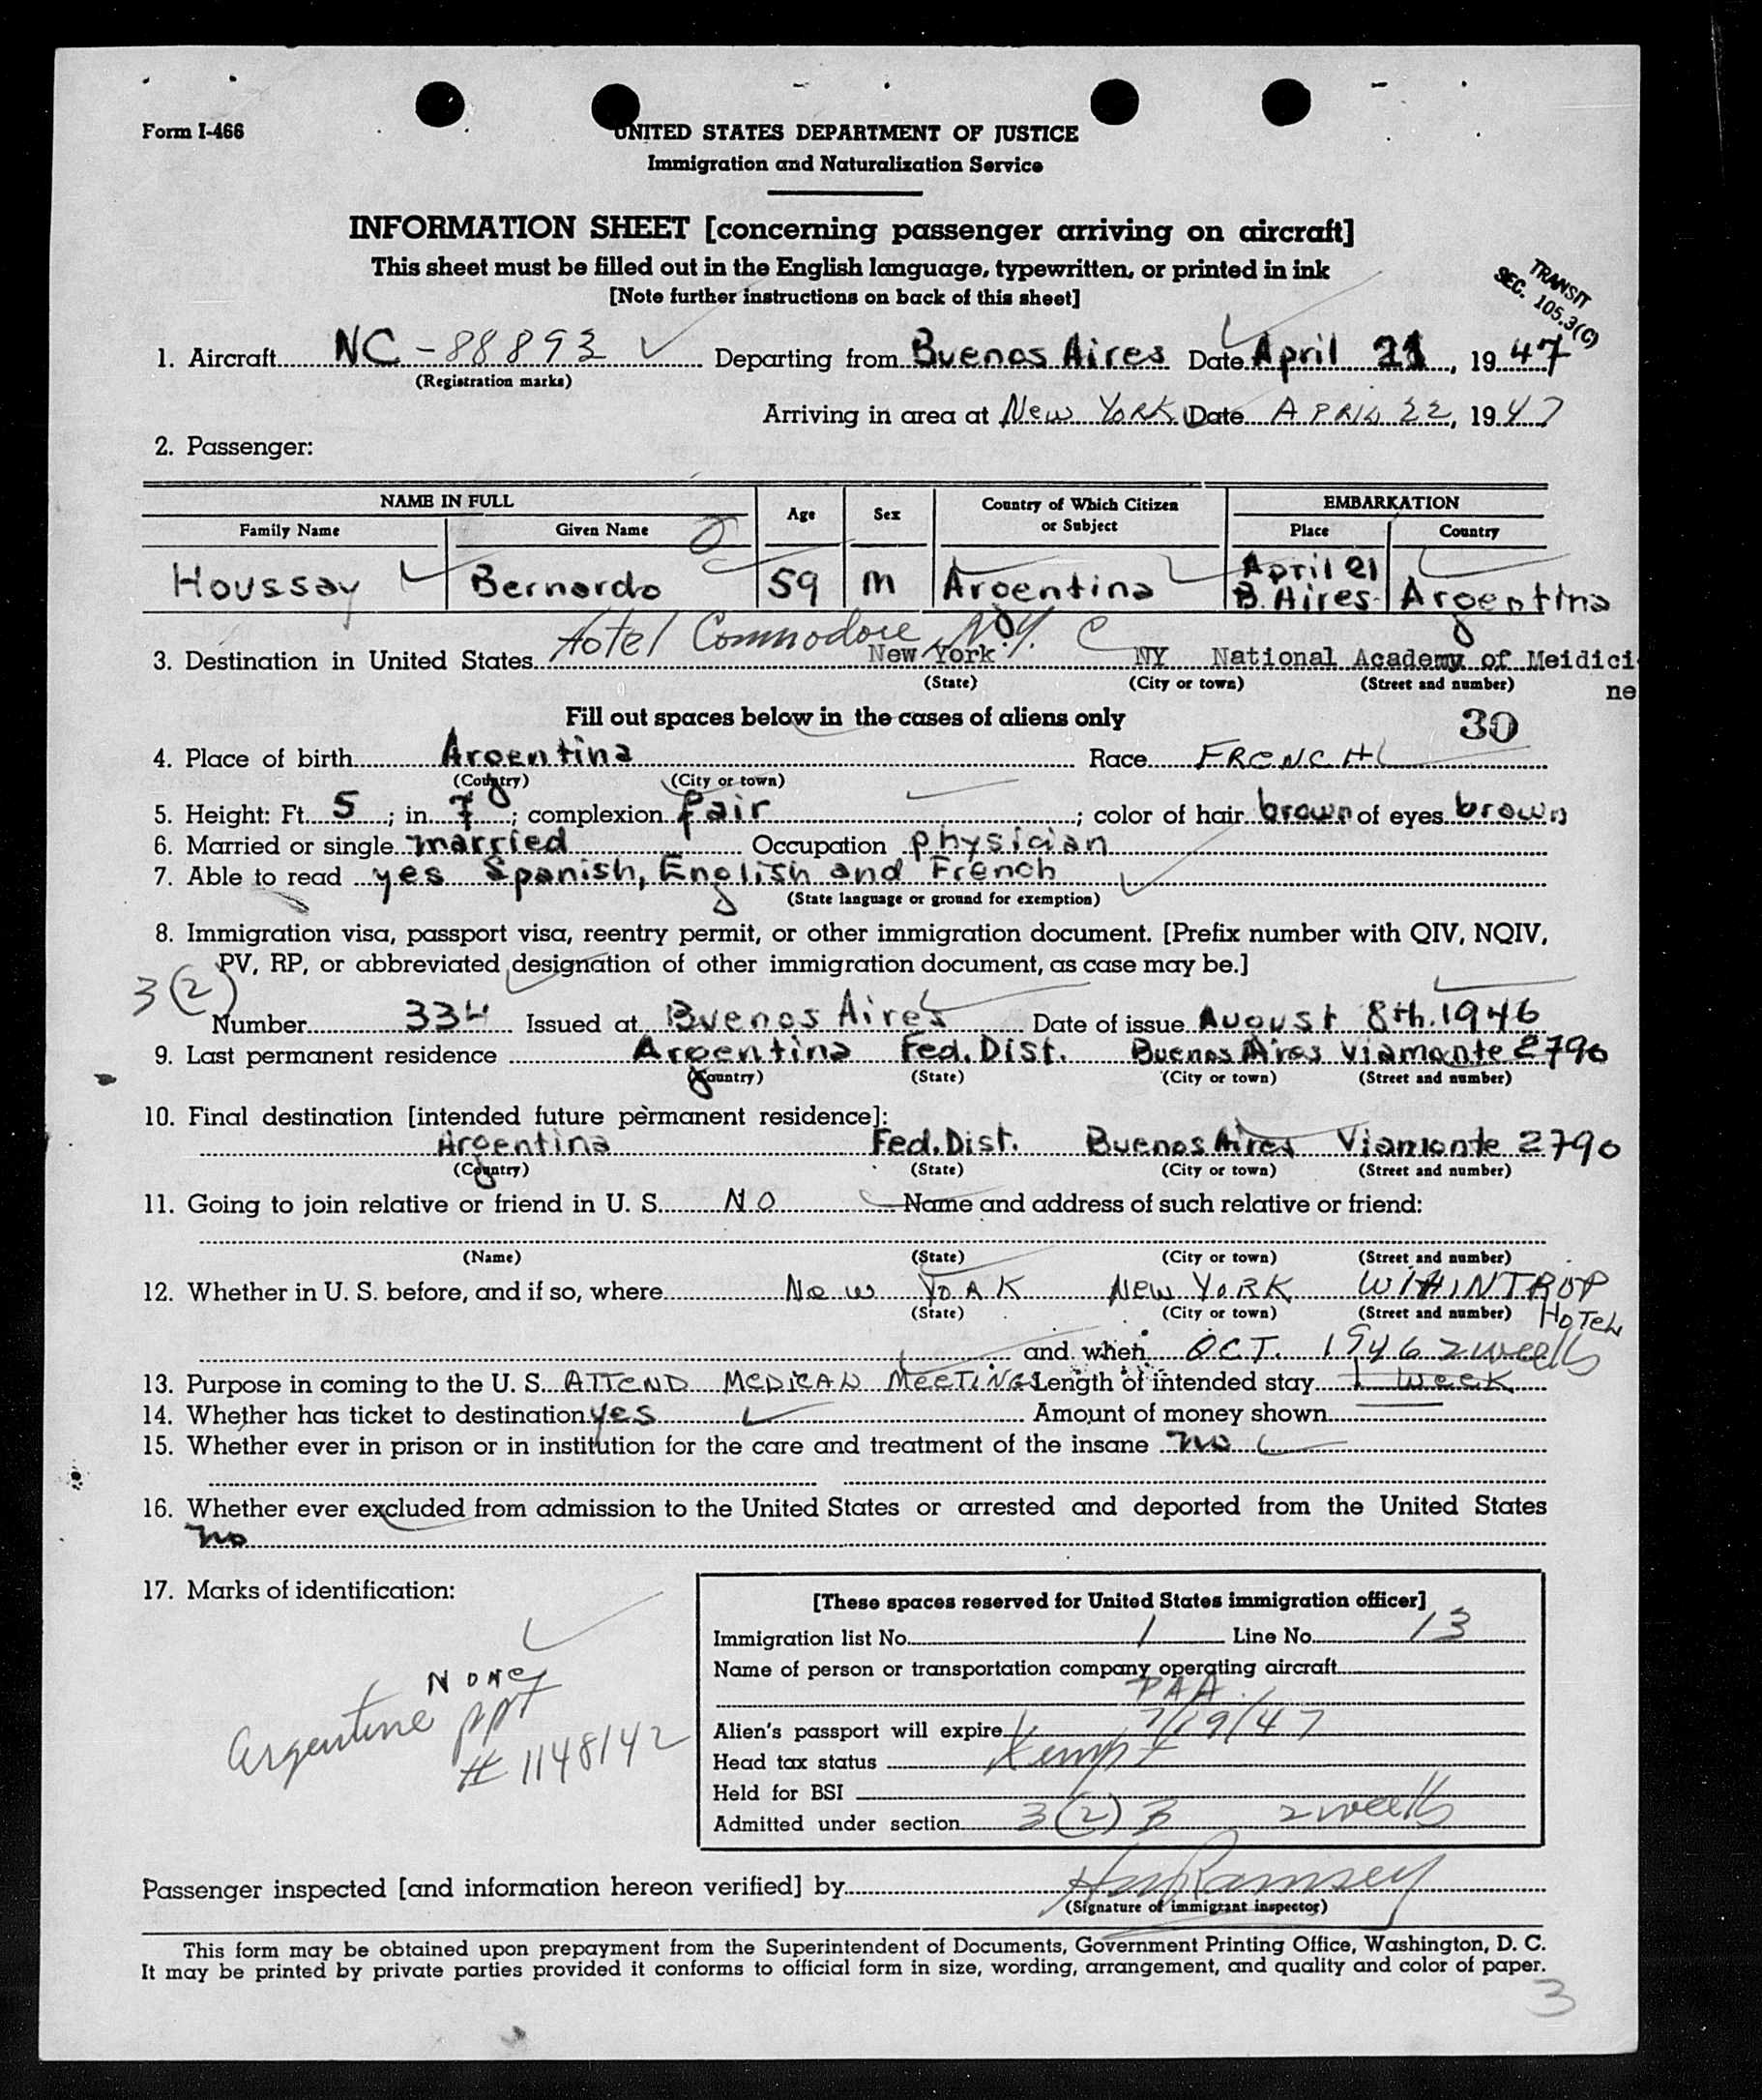 Form I-466
UNITED STATES DEPARTMENT OF JUSTICE
Immigration and Naturalization Service
INFORMATION SHEET [concerning passenger arriving on aircraft]
This sheet must be filled out in the English language, typewritten, or printed in ink
[Note further instructions on back of this sheet]
TRANSIT
SEC. 105.3(C)
1. Aircraft NC-88893 Departing from Buenos Aires Date April 21, 1947
(Registration marks)
Arriving in area at New York Date APRIL 22, 1947
2. Passenger:
NAME IN FULL Age Sex Country of Which Citizen or Subject EMBARKATION
Family Name Given Name Place Country
Houssay Bernardo 59 M Argentina April 21 B. Aires Argentina
Hotel Commodore N.Y. C
3. Destination in United States New York NY National Academy of Meidicine
(State) (City or town) (Street and number)
Fill out spaces below in the cases of aliens only
30
4. Place of birth Argentina Race FRENCH
(Country) (City or town)
5. Height: Ft. 5; in. 7; complexion fair; color of hair brown of eyes brown
6. Married or single married Occupation physician
7. Able to read yes Spanish, English and French
(State language or ground for exemption)
8. Immigration visa, passport visa, reentry permit, or other immigration document. [Prefix number with QIV, NQIV,
PV, RP, or abbreviated designation of other immigration document, as case may be.]
3(2)
Number 334 Issued at Buenos Aires Date of issue August 8th. 1946
9. Last permanent residence Argentina Fed. Dist. Buenos Aires Viamonte 2790
(Country) (State) (City or town) (Street and number)
10. Final destination [intended future permanent residence]:
Argentina Fed. Dist. Buenos Aires Viamonte 2790
(Country) (State) (City or town) (Street and number)
11. Going to join relative or friend in U. S. NO Name and address of such relative or friend:
(Name) (State) (City or town) (Street and number)
12. Whether in U. S. before, and if so, where New YORK New YORK WHINTROP
(State) (City or town) (Street and number) HOTEL
and when OCT. 1946 2 weeks
13. Purpose in coming to the U. S. ATTEND MEDICAL MEETINGS Length of intended stay 1 WEEK
14. Whether has ticket to destination yes Amount of money shown
15. Whether ever in prison or in institution for the care and treatment of the insane no
16. Whether ever excluded from admission to the United States or arrested and deported from the United States
no
17. Marks of identification:
NONE
Argentine ppt
# 1148142
[These spaces reserved for United States immigration officer]
Immigration list No. 1 Line No. 13
Name of person or transportation company operating aircraft
PAA
Alien's passport will expire 7/19/47
Head tax status Xempt
Held for BSI
Admitted under section 3(2) B 2 weeks
Passenger inspected [and information hereon verified] by Ramsey
(Signature of immigrant inspector)
This form may be obtained upon prepayment from the Superintendent of Documents, Government Printing Office, Washington, D. C.
It may be printed by private parties provided it conforms to official form in size, wording, arrangement, and quality and color of paper.
3